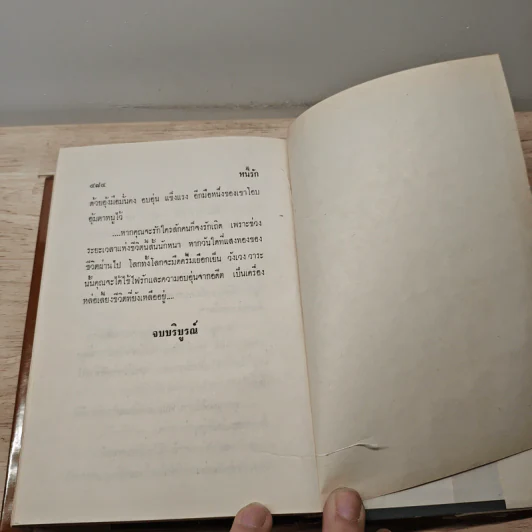 ๔๗๔ หนี้รัก
ด้วยอุ้งมือมั่นคง อบอุ่น แข็งแรง อีกมือหนึ่งของเขาโอบ
อุ้มตาหนูไว้
....หากคุณจะรักใครสักคนก็จงรักเถิด เพราะช่วง
ระยะเวลาแห่งชีวิตนี้สั้นนักหนา หากวันใดที่แสงทองของ
ชีวิตผ่านไป โลกทั้งโลกจะมืดครึ้มเยือกเย็น วังเวง วาระ
นั้นคุณจะได้ใช้ไฟรักและความอบอุ่นจากอดีต เป็นเครื่อง
หล่อเลี้ยงชีวิตที่ยังเหลืออยู่....
จบบริบูรณ์